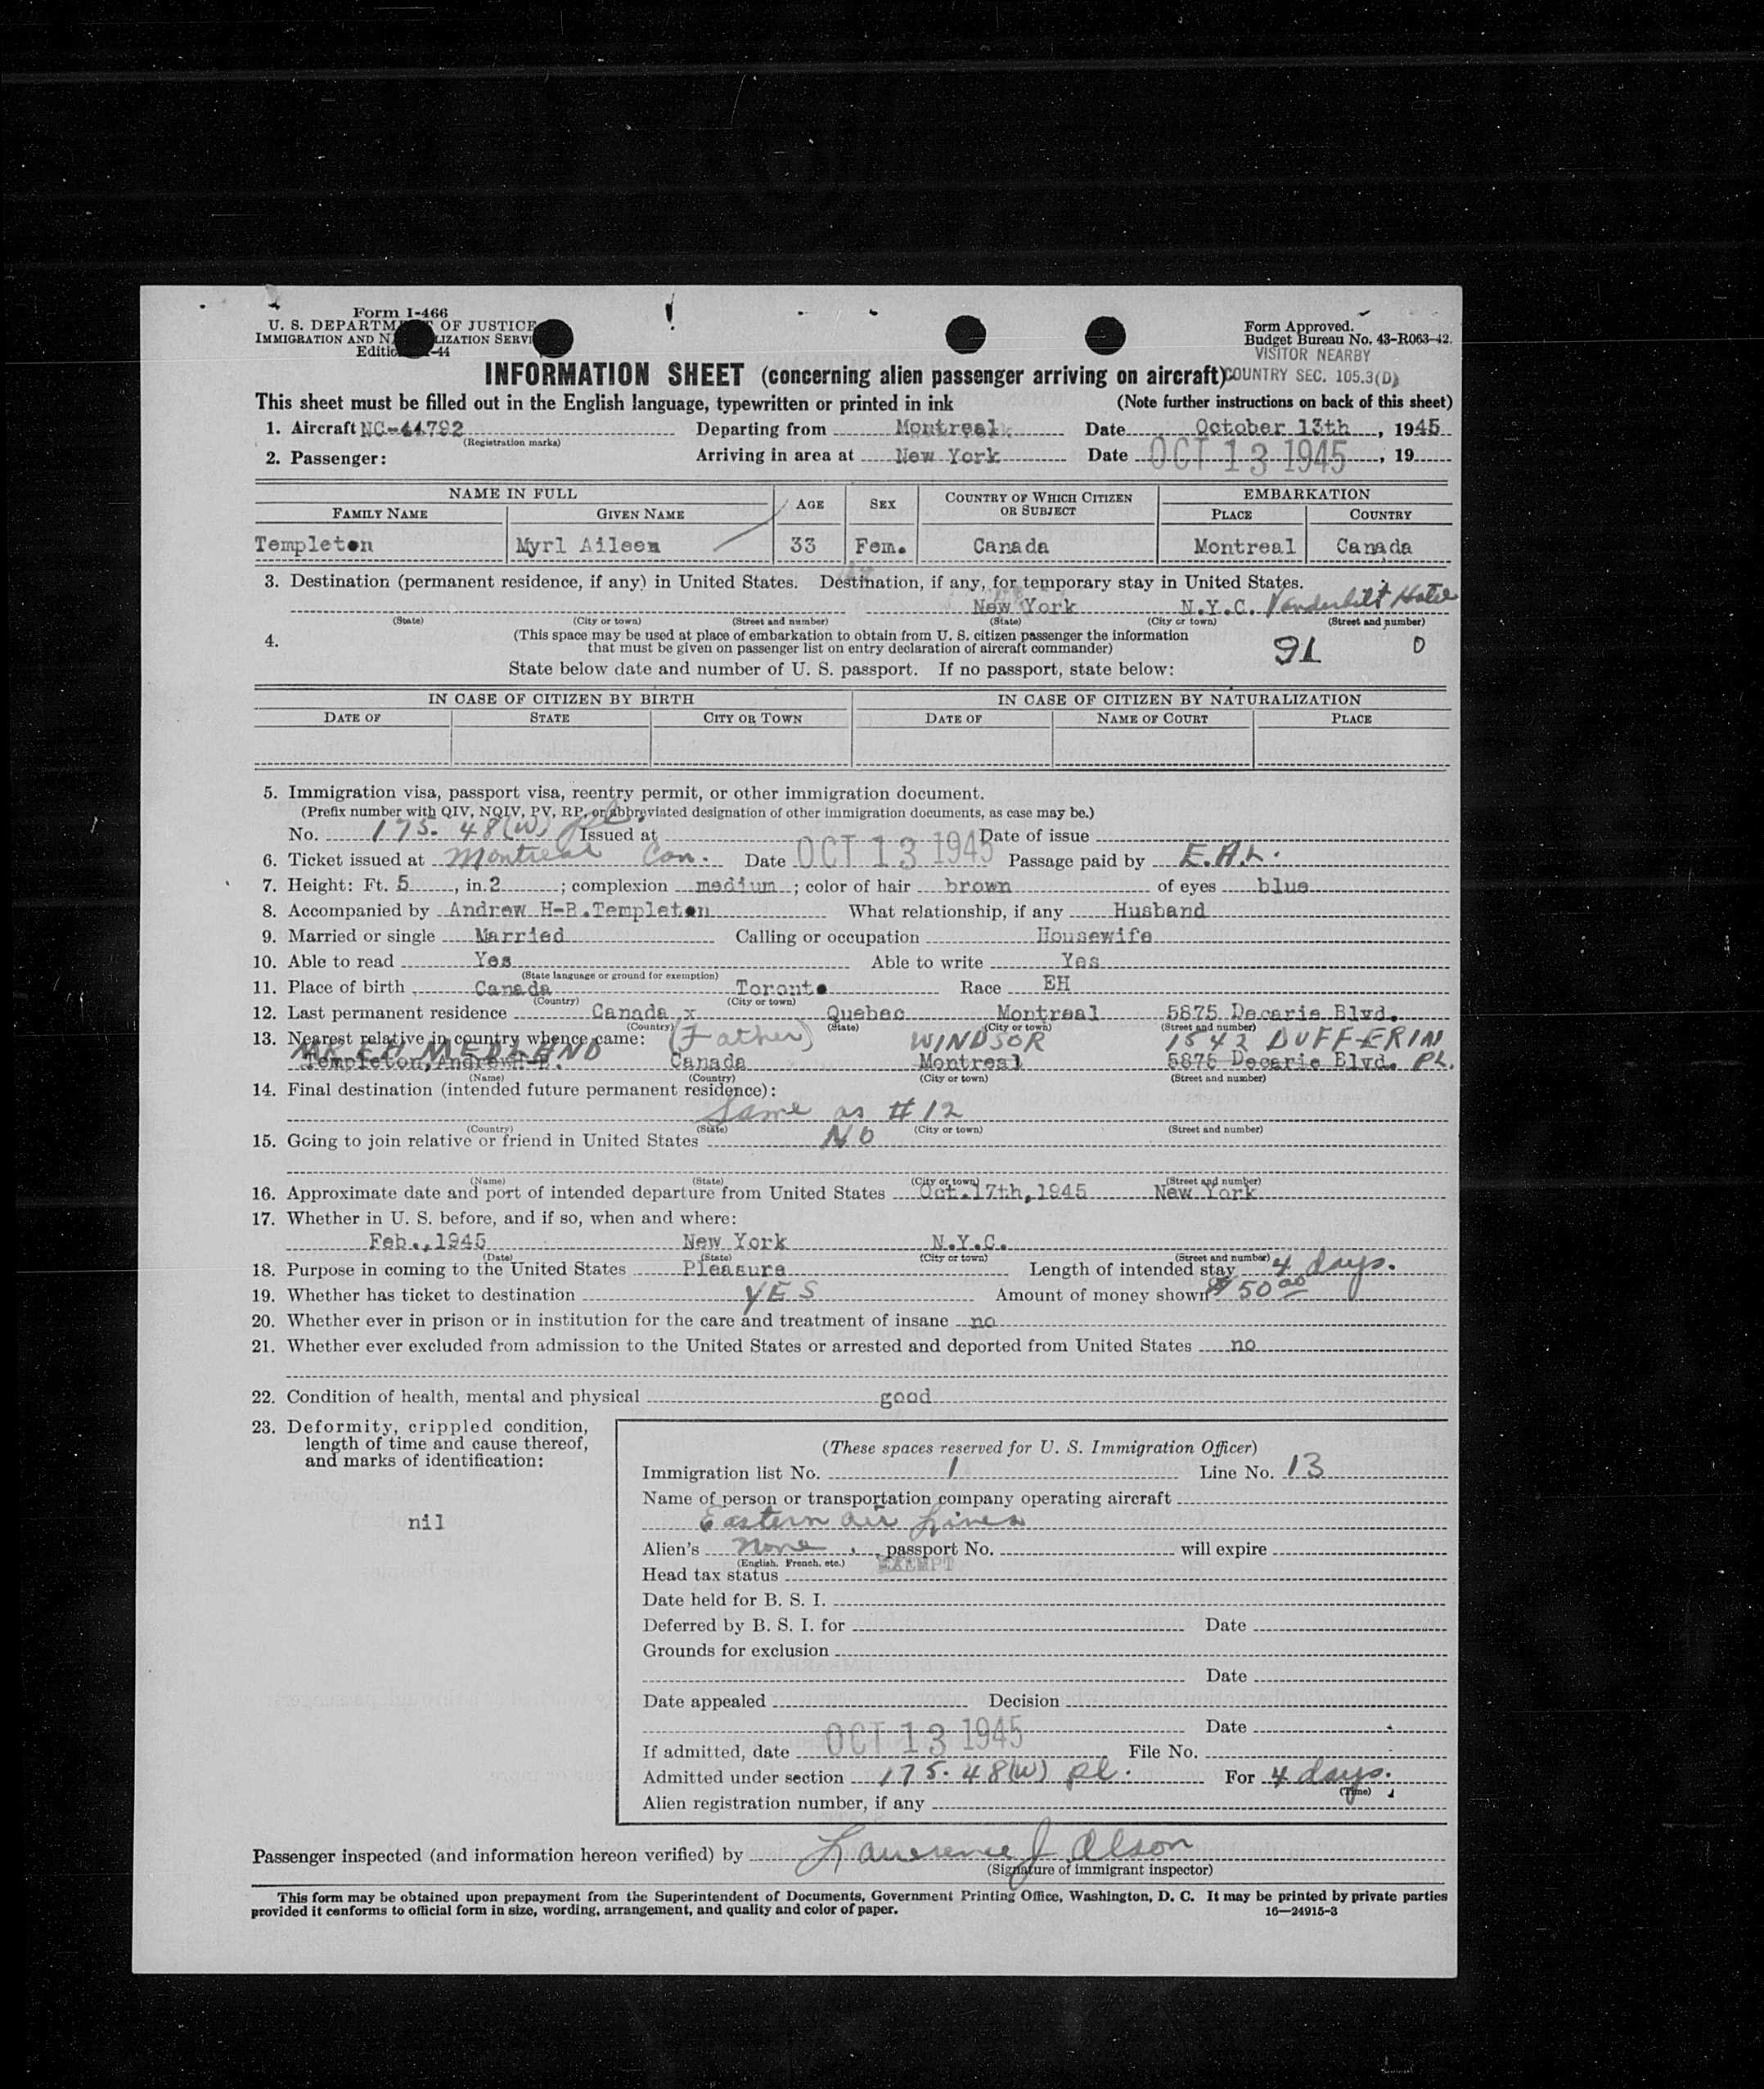 Form I-466
U. S. DEPARTM OF JUSTICE
IMMIGRATION AND N LIZATION SERVI
Editio -44
Form Approved.
Budget Bureau No. 43-R063-42.
VISITOR NEARBY
INFORMATION SHEET (concerning alien passenger arriving on aircraft) COUNTRY SEC. 105.3(D)
This sheet must be filled out in the English language, typewritten or printed in ink (Note further instructions on back of this sheet)
1. Aircraft NC-44792 Departing from Montreal Date October 13th, 1945
(Registration marks)
2. Passenger: Arriving in area at New York Date OCT 13 1945, 19
NAME IN FULL AGE SEX COUNTRY OF WHICH CITIZEN OR SUBJECT EMBARKATION
FAMILY NAME GIVEN NAME PLACE COUNTRY
Templeton Myrl Aileen 33 Fem. Canada Montreal Canada
3. Destination (permanent residence, if any) in United States. Destination, if any, for temporary stay in United States.
New York N.Y.C. Vanderbilt Hotel
(State) (City or town) (Street and number) (State) (City or town) (Street and number)
4. (This space may be used at place of embarkation to obtain from U. S. citizen passenger the information
that must be given on passenger list on entry declaration of aircraft commander) 91 0
State below date and number of U. S. passport. If no passport, state below:
IN CASE OF CITIZEN BY BIRTH IN CASE OF CITIZEN BY NATURALIZATION
DATE OF STATE CITY OR TOWN DATE OF NAME OF COURT PLACE
5. Immigration visa, passport visa, reentry permit, or other immigration document.
(Prefix number with QIV, NQIV, PV, RP, or abbreviated designation of other immigration documents, as case may be.)
No. 175. 48(W) pl. Issued at Date of issue
6. Ticket issued at Montreal Can. Date OCT 13 1945 Passage paid by E.A.L.
7. Height: Ft. 5, in. 2; complexion medium; color of hair brown of eyes blue
8. Accompanied by Andrew H-B.Templeton What relationship, if any Husband
9. Married or single Married Calling or occupation Housewife
10. Able to read Yes Able to write Yes
(State language or ground for exemption)
11. Place of birth Canada Toronto Race EH
(Country) (City or town)
12. Last permanent residence Canada x Quebec Montreal 5875 Decarie Blvd.
(Country) (State) (City or town) (Street and number)
13. Nearest relative in country whence came: (Father) WINDSOR 1542 DUFFERIN
MR EH MEDLAND
Templeton, Andrew H-B. Canada Montreal 5875 Decarie Blvd. PL.
(Name) (Country) (City or town) (Street and number)
14. Final destination (intended future permanent residence):
Same as #12
(Country) (State) (City or town) (Street and number)
15. Going to join relative or friend in United States NO
(Name) (State) (City or town) (Street and number)
16. Approximate date and port of intended departure from United States Oct.17th,1945 New York
17. Whether in U. S. before, and if so, when and where:
Feb.,1945 New York N.Y.C.
(Date) (State) (City or town) (Street and number)
18. Purpose in coming to the United States Pleasure Length of intended stay 4 days.
19. Whether has ticket to destination YES Amount of money shown $50.00
20. Whether ever in prison or in institution for the care and treatment of insane no
21. Whether ever excluded from admission to the United States or arrested and deported from United States no
22. Condition of health, mental and physical good
23. Deformity, crippled condition,
length of time and cause thereof,
and marks of identification:
nil
(These spaces reserved for U. S. Immigration Officer)
Immigration list No. 1 Line No. 13
Name of person or transportation company operating aircraft
Eastern Air Lines
Alien's None, passport No. will expire
(English, French, etc.)
Head tax status EXEMPT
Date held for B. S. I.
Deferred by B. S. I. for Date
Grounds for exclusion
Date
Date appealed Decision
Date
If admitted, date OCT 13 1945 File No.
Admitted under section 175. 48(W) pl. For 4 days.
(Time)
Alien registration number, if any
Passenger inspected (and information hereon verified) by Lawrence J. Olson
(Signature of immigrant inspector)
This form may be obtained upon prepayment from the Superintendent of Documents, Government Printing Office, Washington, D. C. It may be printed by private parties
provided it conforms to official form in size, wording, arrangement, and quality and color of paper. 16—24915-3